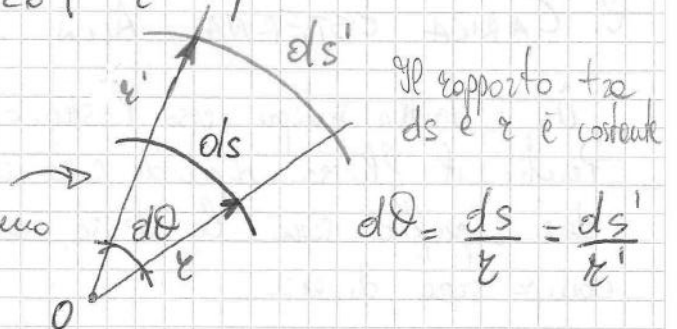 ds'
r'
Il rapporto tra
ds e r è costante
ds
dθ
dθ = ds/r = ds'/r'
r
O